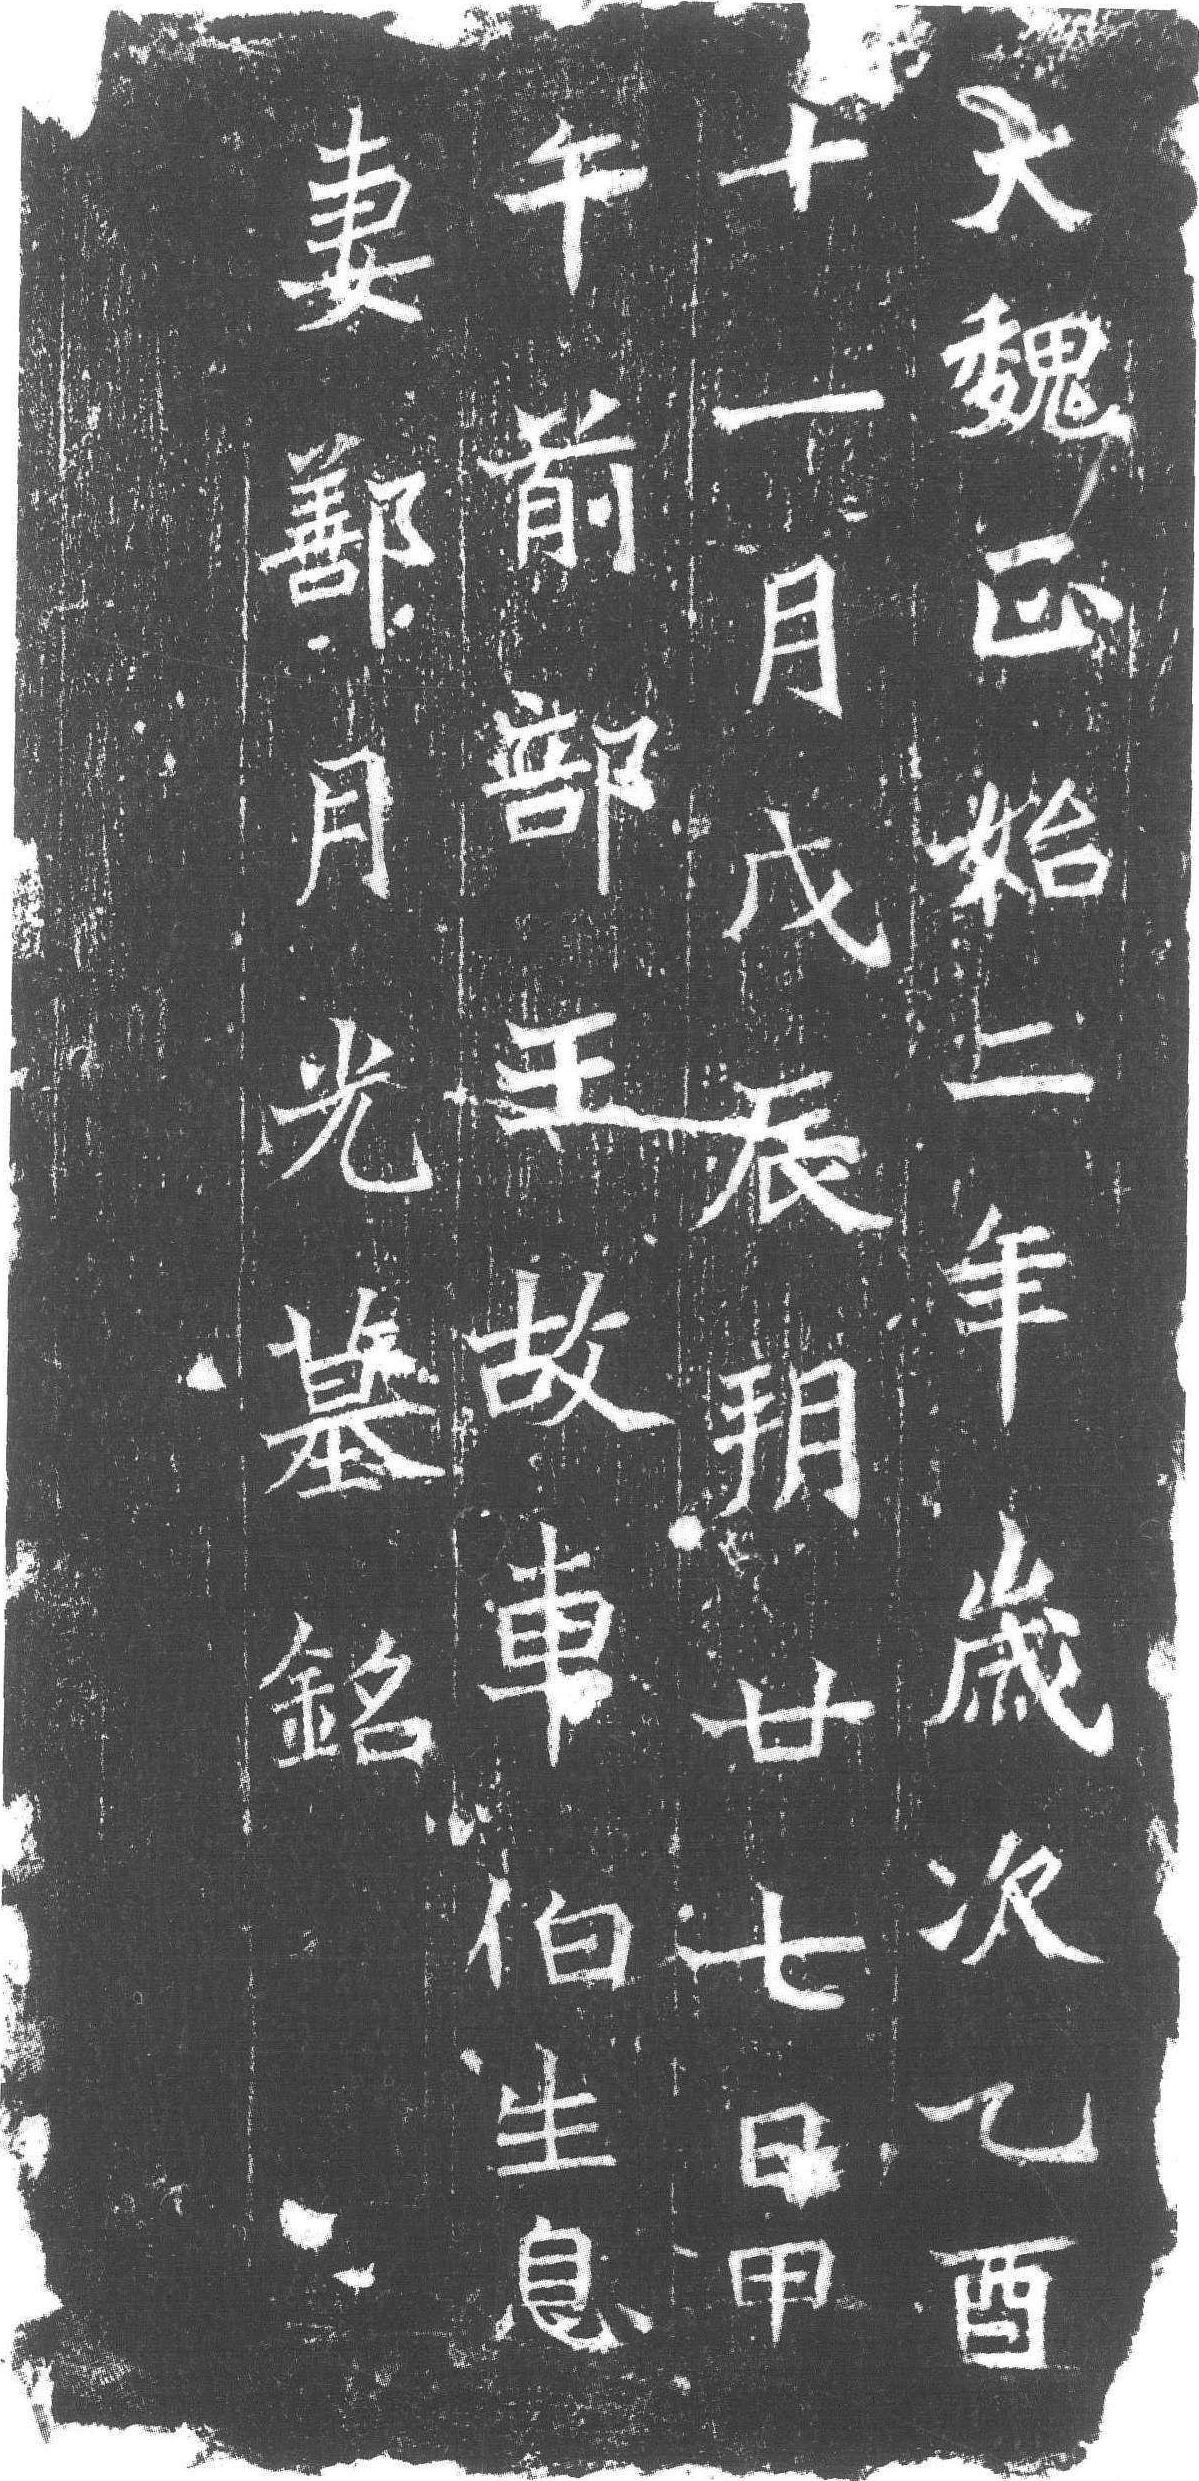 大魏正始二年歲次乙酉
十一月戊辰朔廿七日甲
午前部王故車伯生息
妻鄯月光墓銘